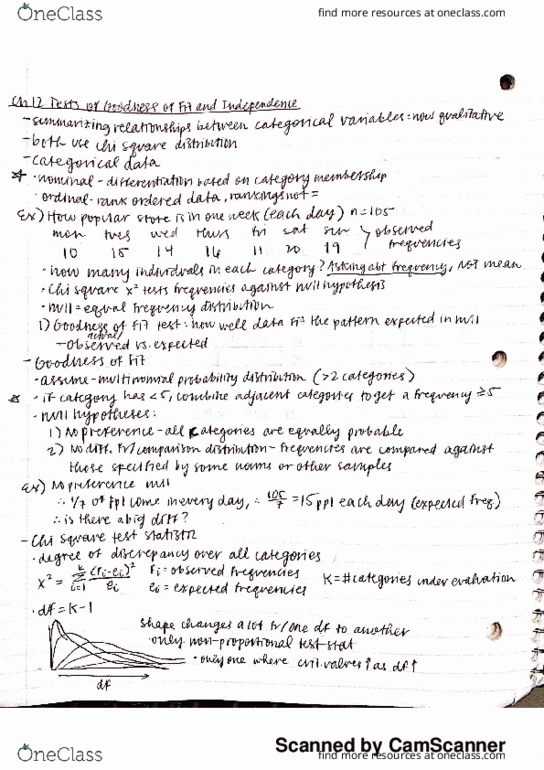 OneClass
find more resources at oneclass.com
Ch 12 Tests of Goodness of Fit and Independence
- summarizing relationships between categorical variables: now qualitative
- both use chi square distribution
- categorical data
* · nominal - differentiation based on category membership
· ordinal - rank ordered data, rankings not =
Ex) How popular store is in one week (each day) n=105
mon tues wed thurs fri sat sun } observed
10 15 14 16 11 20 19 frequencies
· how many individuals in each category? Asking abt frequency, NOT mean
· chi square x² tests frequencies against null hypothesis
· null = equal frequency distribution
1) Goodness of Fit test: how well data fit the pattern expected in null
actual/
- observed vs. expected
- Goodness of Fit
· assume - multinomial probability distribution (>2 categories)
* · if category has <5, combine adjacent categories to get a frequency ≥5
· null hypotheses:
1) No preference - all categories are equally probable
2) No diff. fr/comparison distribution - frequencies are compared against
those specified by some norms or other samples
Ex) No preference null
∴ 1/7 of ppl come in every day, ∴ 105/7 = 15 ppl each day (expected freq.)
∴ is there a big diff?
- Chi square test statistic
· degree of discrepancy over all categories
x² = Σ k i=1 (fi-ei)²/ei fi = observed frequencies
ei = expected frequencies K = # categories under evaluation
· df = K-1
shape changes a lot fr/one df to another
· only non-proportional test stat
· only one where crit values ↑ as df ↑
df
Scanned by CamScanner
OneClass
find more resources at oneclass.com